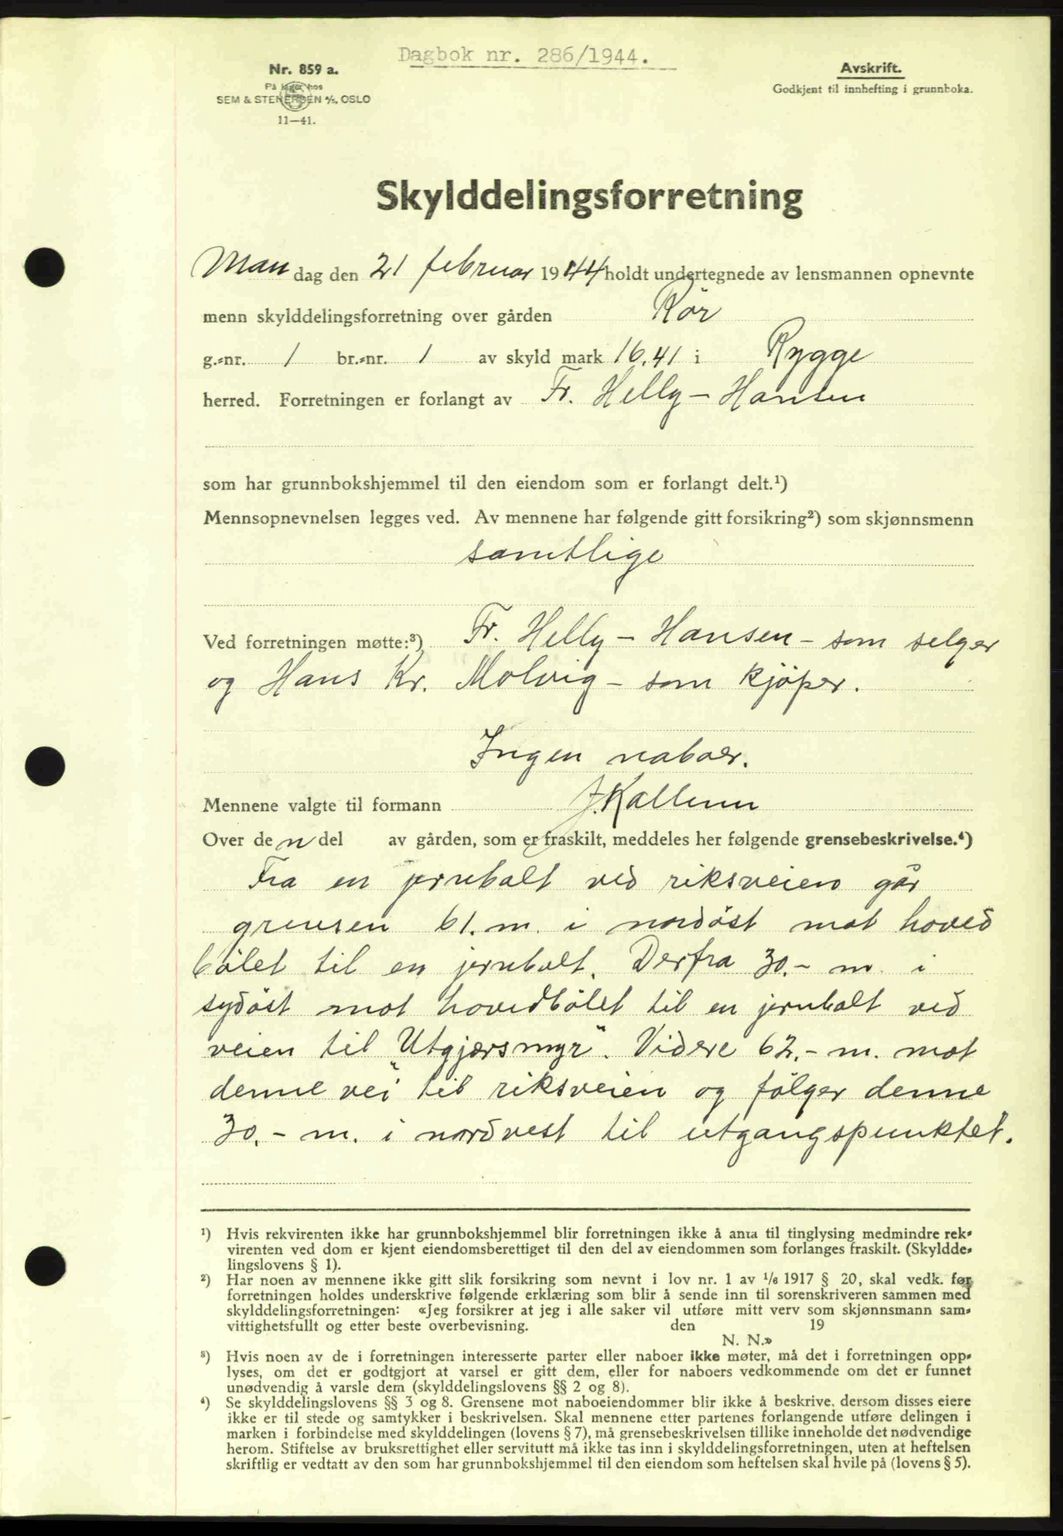 Dagbok nr. 286/1944.
Nr. 859 a.
På lager hos
SEM & STENERSEN A/S, OSLO
11—41.
Avskrift.
Godkjent til innhefting i grunnboka.
Skylddelingsforretning
Man dag den 21 februar 1944 holdt undertegnede av lensmannen opnevnte
menn skylddelingsforretning over gården Rör
g.-nr. 1 br.-nr. 1 av skyld mark 16.41 i Rygge
herred. Forretningen er forlangt av Fr. Helly-Hansen
som har grunnbokshjemmel til den eiendom som er forlangt delt.¹)
Mennsopnevnelsen legges ved. Av mennene har følgende gitt forsikring²) som skjønnsmenn
samtlige
Ved forretningen møtte:³) Fr. Helly-Hansen - som selger
og Hans Kr. Molvig - som kjöper.
Ingen naboer.
Mennene valgte til formann J. Kallum
Over den del av gården, som er fraskilt, meddeles her følgende grensebeskrivelse.⁴)
Fra en jernbolt ved riksveien går
grensen 61. m. i nordöst mot hoved
bölet til en jernbolt. Derfra 30.- m. i
sydöst mot hovedbölet til en jernbolt ved
veien til "Utgjærsmyr". Videre 62.- m. mot
denne vei til riksveien og fölger denne
30.- m. i nordvest til utgangspunktet.
¹) Hvis rekvirenten ikke har grunnbokshjemmel blir forretningen ikke å anta til tinglysing medmindre rek-
virenten ved dom er kjent eiendomsberettiget til den del av eiendommen som forlanges fraskilt. (Skyldde-
lingslovens § 1).
²) Har noen av mennene ikke gitt slik forsikring som nevnt i lov nr. 1 av 1/6 1917 § 20, skal vedk. før
forretningen holdes underskrive følgende erklæring som blir å sende inn til sorenskriveren sammen med
skylddelingsforretningen: «Jeg forsikrer at jeg i alle saker vil utføre mitt verv som skjønnsmann sam-
vittighetsfullt og etter beste overbevisning. den 19
N. N.»
³) Hvis noen av de i forretningen interesserte parter eller naboer ikke møter, må det i forretningen opp-
lyses, om det er godtgjort at varsel er gitt dem, eller for naboers vedkommende om det er funnet
unødvendig å varsle dem (skylddelingslovens §§ 2 og 8).
⁴) Se skylddelingslovens §§ 3 og 8. Grensene mot naboeiendommer blir ikke å beskrive, dersom disses eiere
ikke er til stede og samtykker i beskrivelsen. Skal mennene etter partenes forlangende utføre delingen i
marken i forbindelse med skylddelingen (lovens § 7), må grensebeskrivelsen tillike inneholde det nødvendige
herom. Stiftelse av bruksrettighet eller servitutt må ikke tas inn i skylddelingsforretningen, uten at heftelsen
skriftlig er vedtatt av den som har grunnbokshjemmel til den eiendom som heftelsen skal hvile på (lovens § 5).